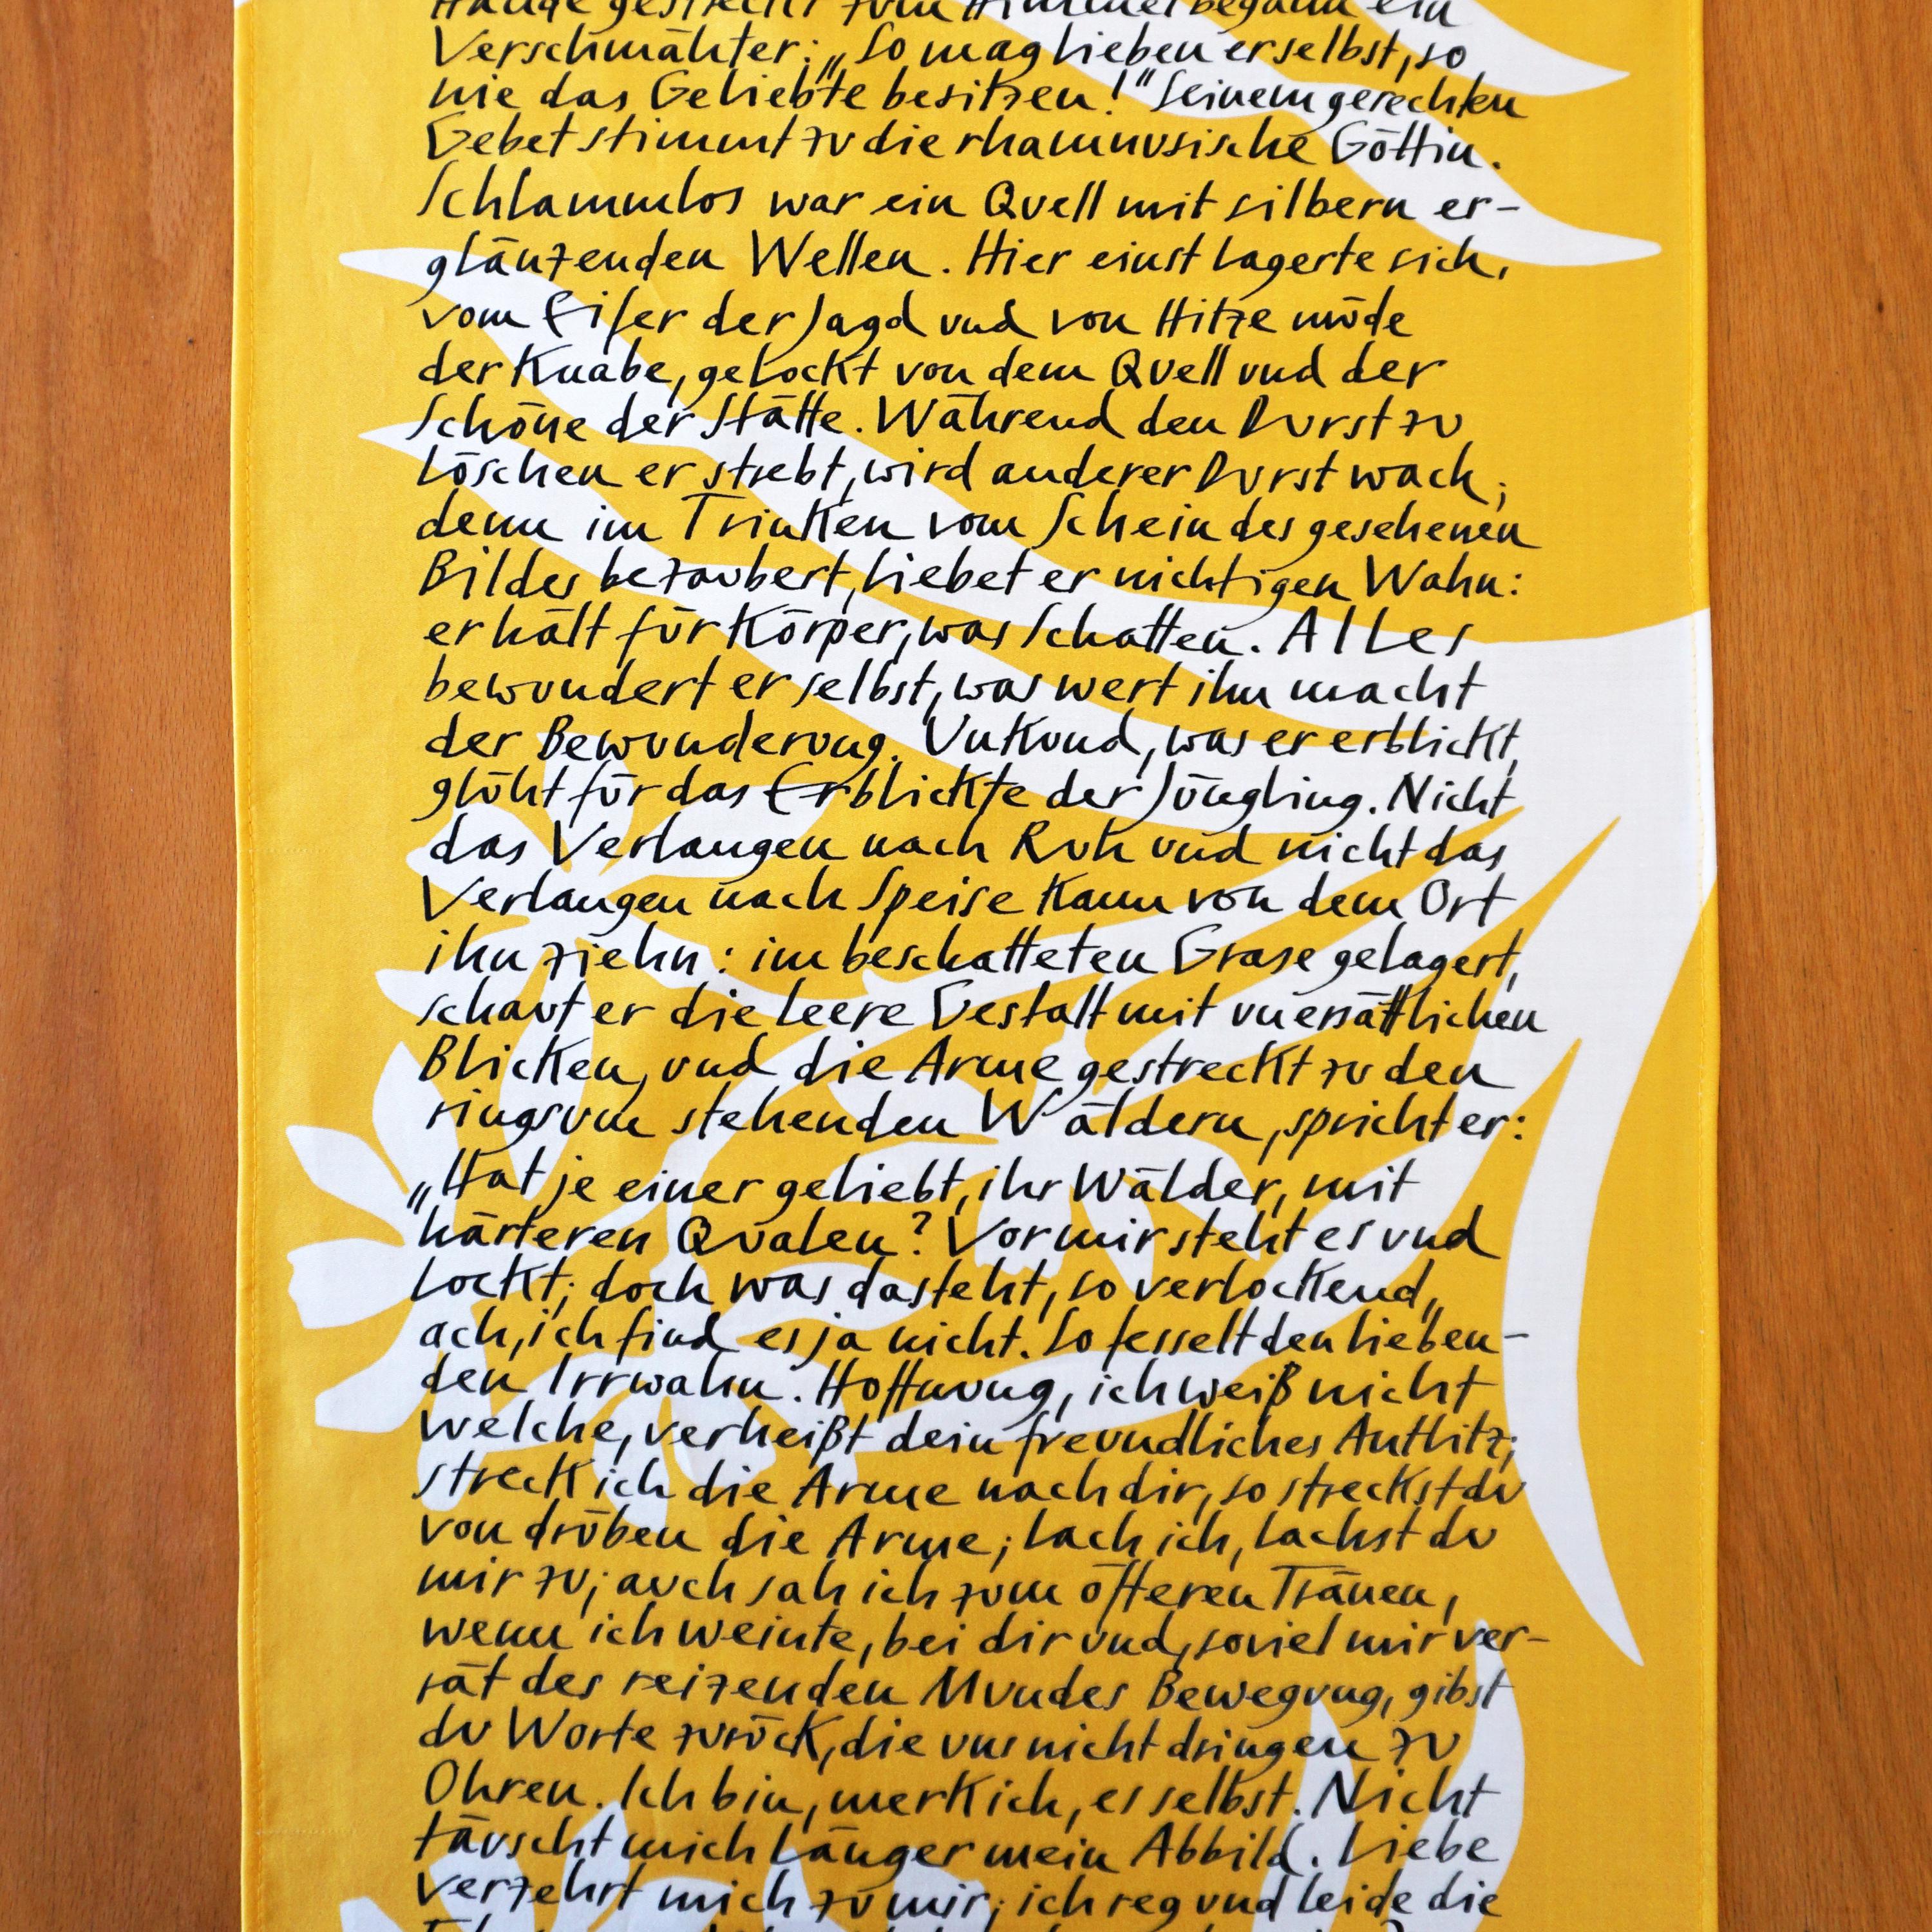 Hände gestreckt zum Himmel begann ein
Verschmähter: „So mag lieben er selbst, so
nie das Geliebte besitzen!" Seinem gerechten
Gebet stimmt zu die rhamnusische Göttin.
Schlammlos war ein Quell mit silbern er-
glänzenden Wellen. Hier einst lagerte sich,
vom Eifer der Jagd und von Hitze müde
der Knabe, gelockt von dem Quell und der
Schöne der Stätte. Während den Durst zu
löschen er strebt, wird anderer Durst wach;
denn im Trinken vom Schein des gesehenen
Bildes bezaubert, liebet er nichtigen Wahn:
er hält für Körper, was Schatten. Alles
bewundert er selbst, was wert ihn macht
der Bewunderung. Unkund, was er erblickt,
glüht für das Erblickte der Jüngling. Nicht
das Verlangen nach Ruh und nicht das
Verlangen nach Speise kann von dem Ort
ihn ziehn: im beschatteten Grase gelagert,
schaut er die leere Gestalt mit unersättlichen
Blicken, und die Arme gestreckt zu den
ringsum stehenden Wäldern, spricht er:
„Hat je einer geliebt, ihr Wälder, mit
härteren Qualen? Vor mir steht es und
lockt; doch was dasteht, so verlockend,
ach, ich find es ja nicht. So fesselt den lieben-
den Irrwahn. Hoffnung, ich weiß nicht
welche, verheißt dein freundliches Antlitz;
streck ich die Arme nach dir, so streckst du
von drüben die Arme; lach ich, lachst du
mir zu; auch sah ich zum öfteren Tränen,
wenn ich weinte, bei dir und, soviel mir ver-
rät des reizenden Mundes Bewegung, gibst
du Worte zurück, die uns nicht dringen zu
Ohren. Ich bin, merk ich, es selbst. Nicht
täuscht mich länger mein Abbild. Liebe
verzehrt mich zu mir; ich reg und leide die